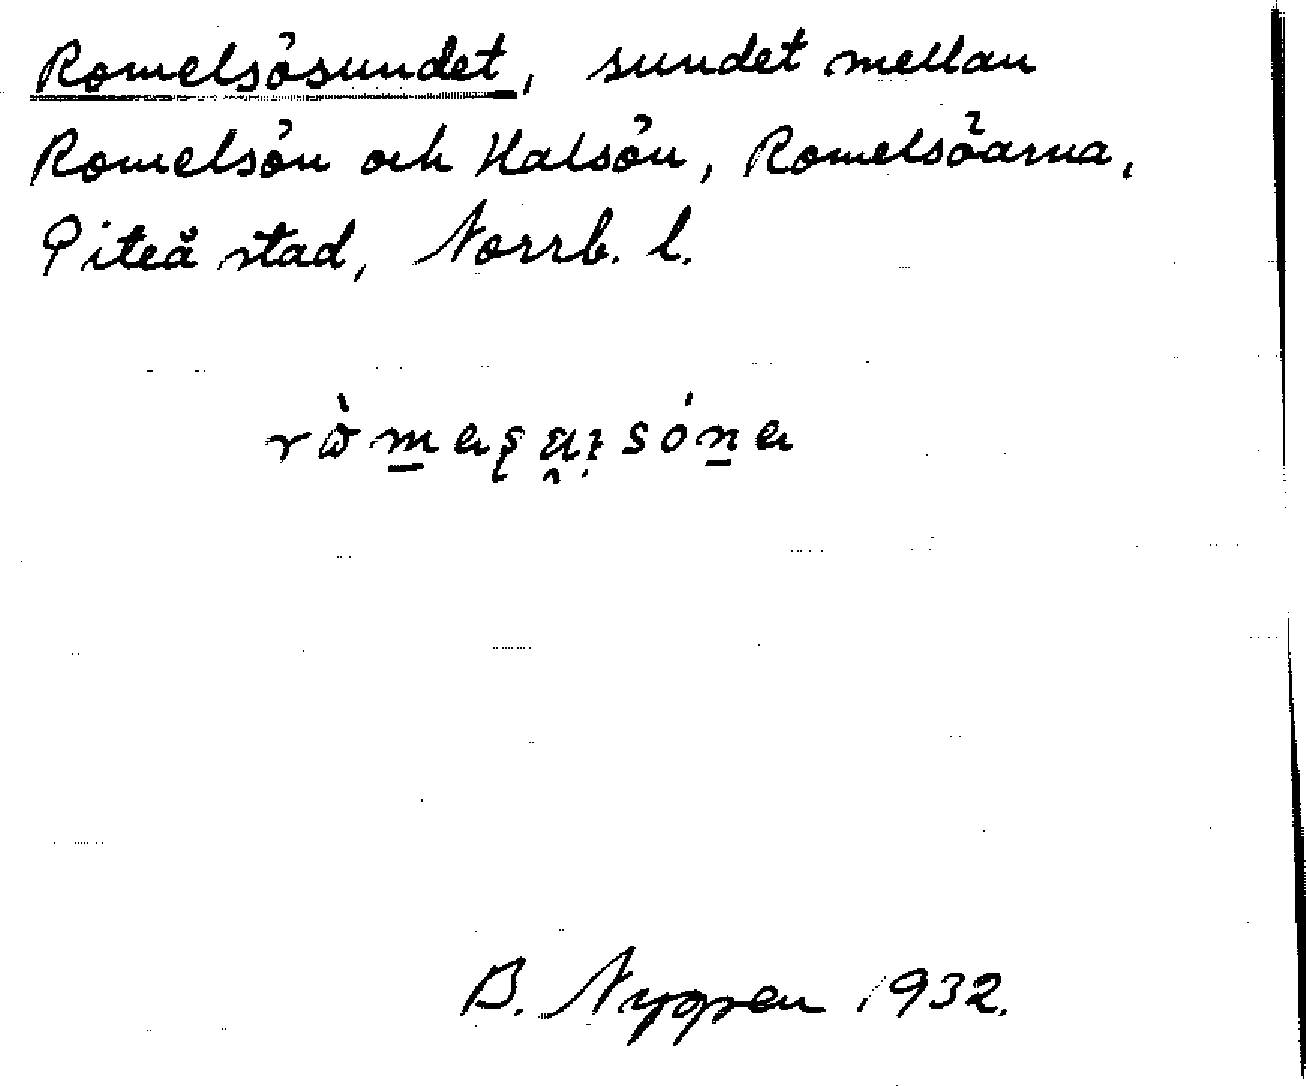 Romelsösundet, sundet mellan
Romelsön och Halsön, Romelsöarna,
Piteå stad, Norrb. l.
B. Nygren 1932.